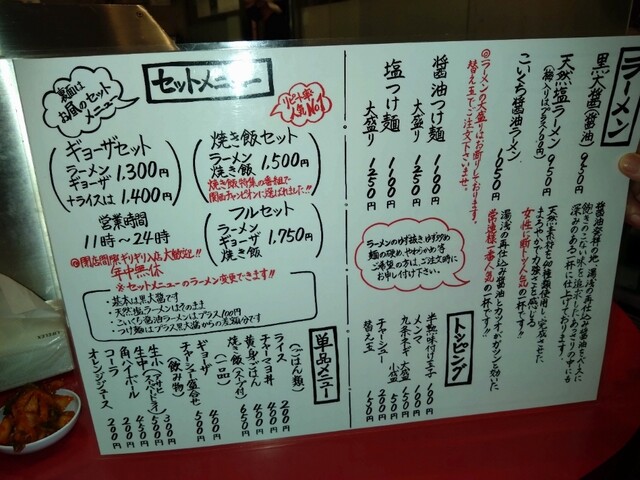 ラーメン
黒大醤(醤油) 950円
天然塩ラーメン 950円
(梅入りはプラス100円)
こいくち醤油ラーメン 1050円
◎ラーメンの大盛りはお断りしております。
替え玉でご注文下さいませ。
醤油つけ麺 1100円
大盛り 1250円
塩つけ麺 1100円
大盛り 1250円
醤油発祥の地、湯浅の再仕込み醤油をベースに
飽きのこない味を追求したあっさりの中にも
深みのある一杯に仕上げております。
天然素材を何種類も使用し完成させた
まろやかで力強さも感じる
女性に断トツ人気の一杯です!!
湯浅の再仕込み醤油とカツオがガツンと効いた
常連様一番人気の一杯です!!
ラーメンのゆず抜き ゆず少なめ
麺の硬め、やわらかめ等
ご希望の方は、ご注文時に
お申し付け下さい。
トッピング
半熟味付け玉子 100円
メンマ 100円
九条ネギ 大盛 200円
小盛 100円
チャーシュー 500円
替え玉 150円
セットメニュー
裏面は
お昼のセット
メニュー
リピート率
人気No.1
ギョーザセット
ラーメン
ギョーザ 1.300円
+ライスは 1.400円
焼き飯セット
ラーメン
焼き飯 1,500円
焼き飯特集の番組で
関西チャンピオンに選ばれました!!
営業時間
11時〜24時
◎閉店間際ギリギリ入店大歓迎!!
年中無休
フルセット
ラーメン
ギョーザ
焼き飯 1,750円
※セットメニューのラーメン変更できます!!
・基本は黒大醤です
・天然塩ラーメンはそのまま
・こいくち醤油ラーメンはプラス100円
・つけ麺はプラス黒大醤からの差額分です
単品メニュー
(ごはん類)
ライス 200円
チャーマヨ丼 400円
黄身ごはん 400円
焼き飯(スープ付) 650円
(一品)
ギョーザ 400円
チャーシュー盛合せ 500円
(飲み物)
生ホパ(スーパードライ) 300円
生中 550円
角ハイボール 450円
コーラ 200円
オレンジジュース 200円